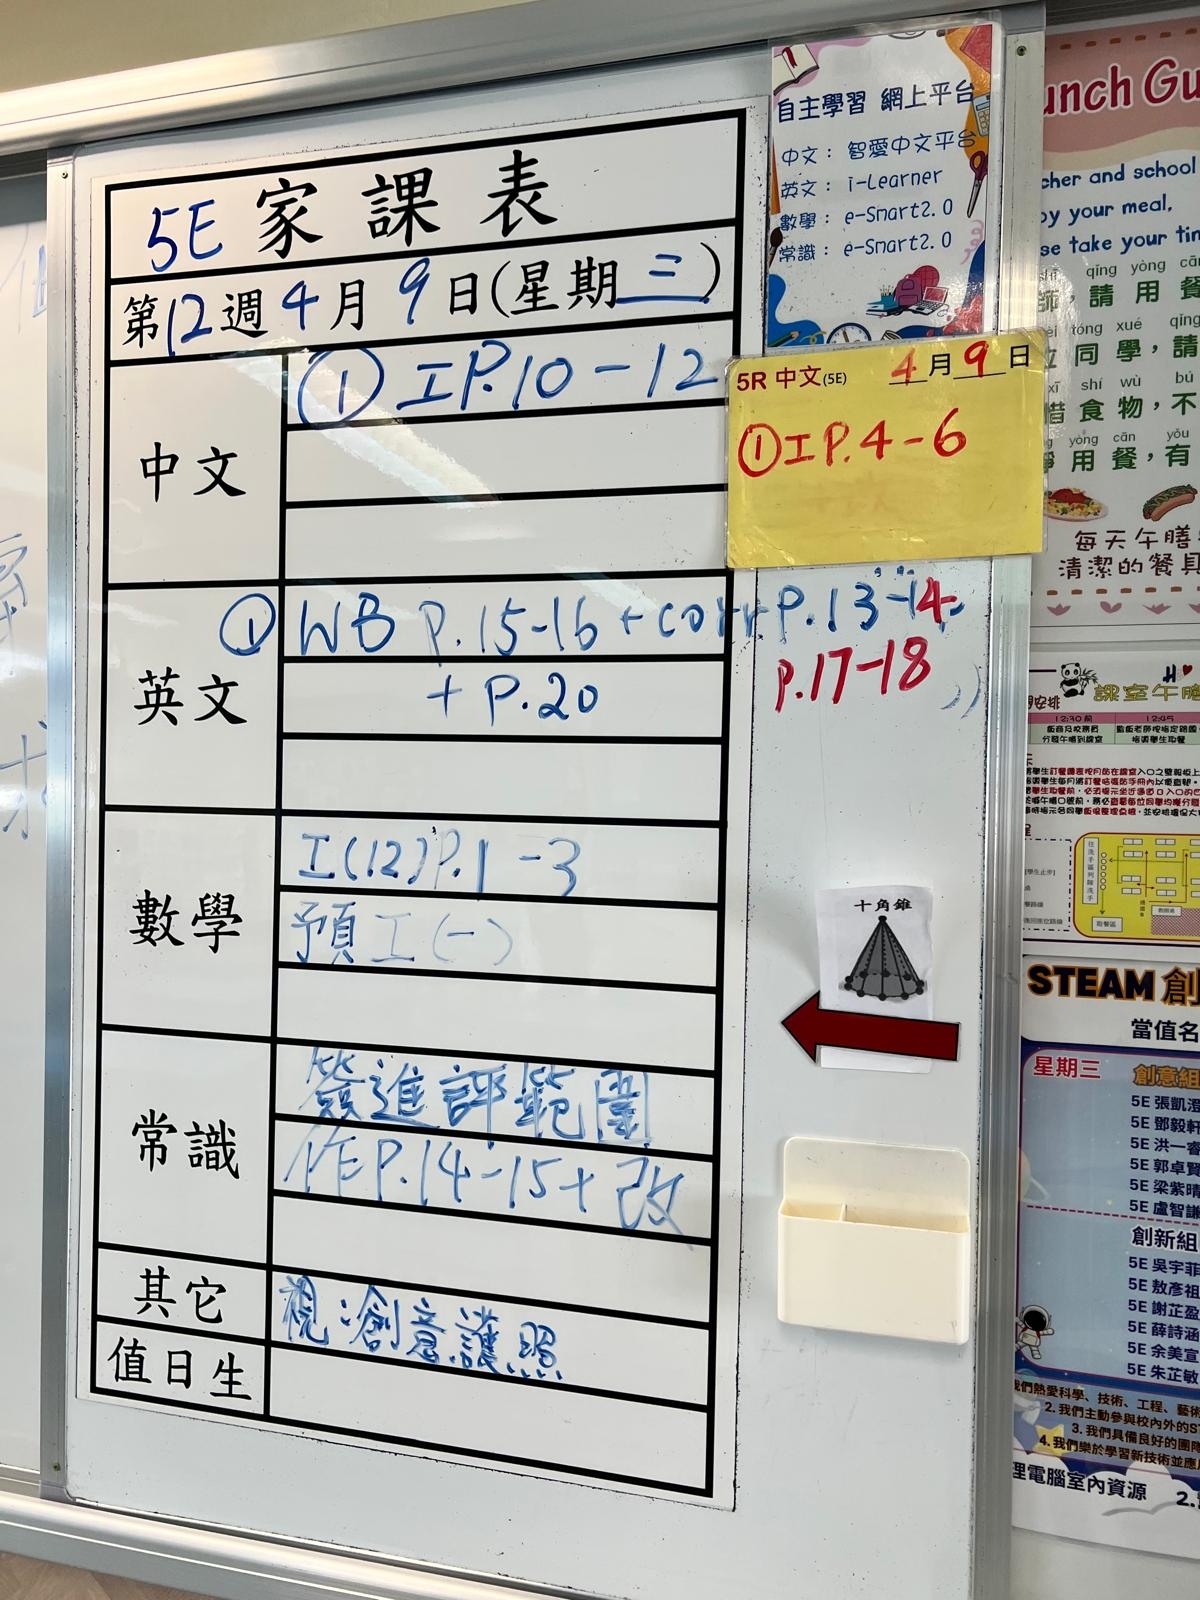 5E 家課表
第12週4月9日(星期三)
中文
① 工P.10-12
英文
① WB p.15-16 + corr p.13-14,
p.17-18
+ p.20
數學
工(12)P.1-3
預工(一)
常識
簽進評範圍
作P.14-15+改
其它
視:創意護照
值日生
自主學習 網上平台
中文: 智愛中文平台
英文: i-Learner
數學: e-Smart2.0
常識: e-Smart2.0
5R 中文(5E) 4月9日
①工P.4-6
十角錐
unch Gu
cher and school
y your meal,
se take your tim
qǐng yòng cān
師,請用餐
tóng xué qǐng
位同學,請
xī shí wù bú
惜食物,不
yòng cān yǒu
淨用餐,有
每天午膳
清潔的餐具
課室午膳
12:30前 12:45
STEAM 創
當值名
星期三
創意組
5E 張凱澄
5E 鄧毅軒
5E 洪一睿
5E 郭卓賢
5E 梁紫晴
5E 盧智謙
創新組
5E 吳宇菲
5E 敖彥祖
5E 謝芷盈
5E 薛詩涵
5E 余美宣
5E 朱芷敏
我們熱愛科學、技術、工程、藝術
2. 我們主動參與校內外的S
3. 我們具備良好的團隊
4. 我們樂於學習新技術並應用
理電腦室內資源 2.